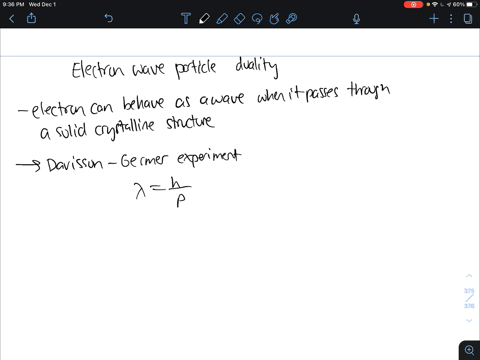 9:36 PM Wed Dec 1
60%
Electron wave particle duality
- electron can behave as a wave when it passes through
a solid crystalline structure
→ Davisson - Germer experiment
λ = h/p